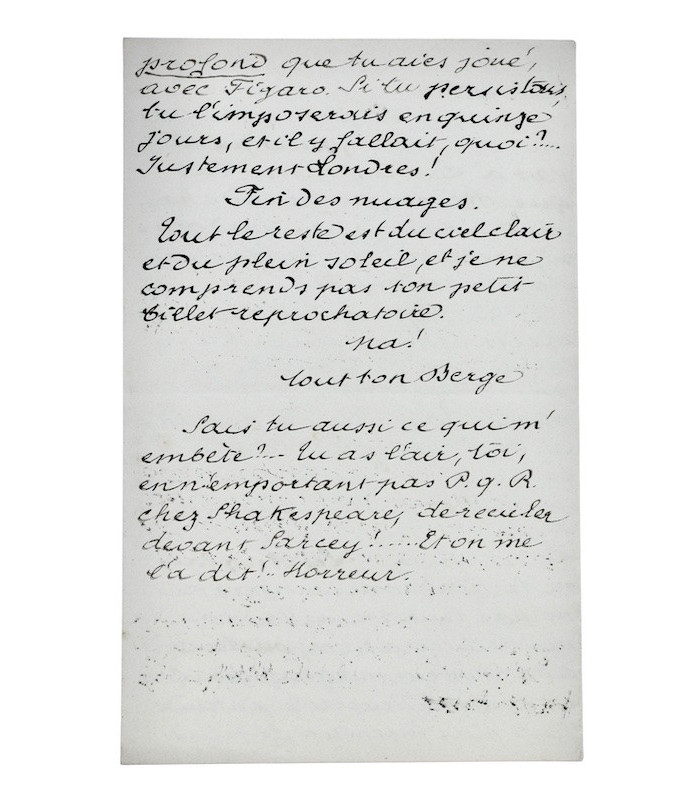 profond que tu aies joué,
avec Figaro. Si tu persistais,
tu l'imposerais en quinze
jours, et il y fallait, quoi?...
Justement Londres!
Fin des nuages.
Tout le reste est du ciel clair
et du plein soleil, et je ne
comprends pas ton petit
billet reprochatoire.
Na!
tout ton Berge
Sais tu aussi ce qui m'
embête?... Tu as l'air, toi,
en n'emportant pas P. q. R.
chez Shakespeare, de reculer
devant Sarcey!.... Et on me
l'a dit!.. Horreur.